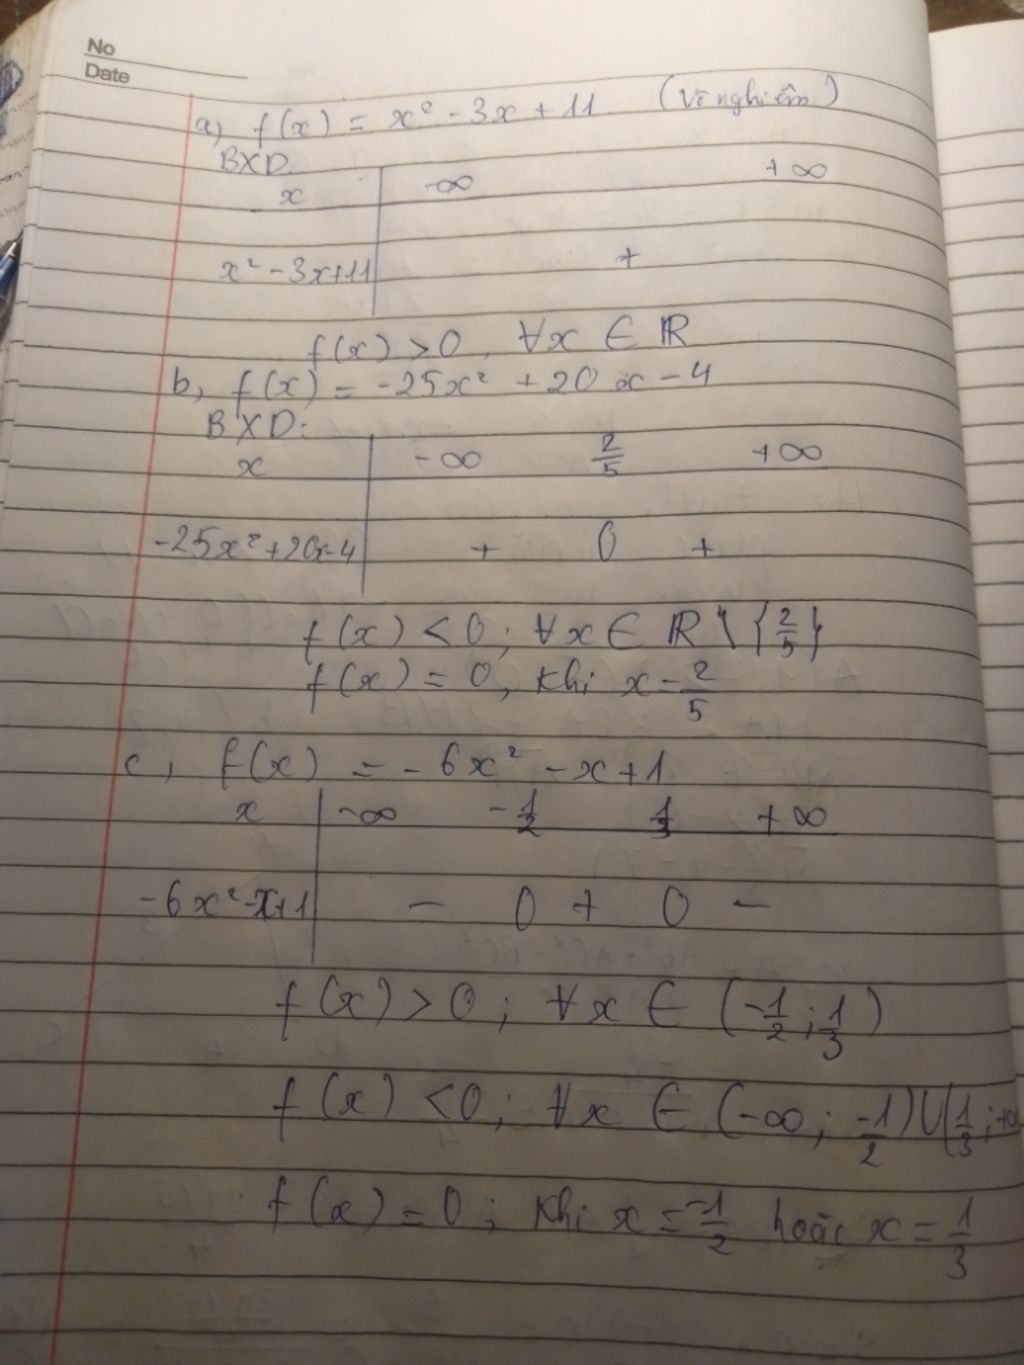 No
Date
a, f(x) = x² - 3x + 11 (Vô nghiệm)
BXD
x -∞ +∞
x² - 3x+11 +
f(x) > 0, ∀x ∈ ℝ
b, f(x) = -25x² + 20x - 4
BXD:
x -∞ 2/5 +∞
-25x²+20x-4 + 0 +
f(x) < 0; ∀x ∈ ℝ \ {2/5}
f(x) = 0, khi x = 2/5
c, f(x) = -6x² - x + 1
x -∞ -1/2 1/3 +∞
-6x²-x+1 - 0 + 0 -
f(x) > 0; ∀x ∈ (-1/2; 1/3)
f(x) < 0; ∀x ∈ (-∞; -1/2) ∪ (1/3; +∞
f(x) = 0; khi x = -1/2 hoặc x = 1/3